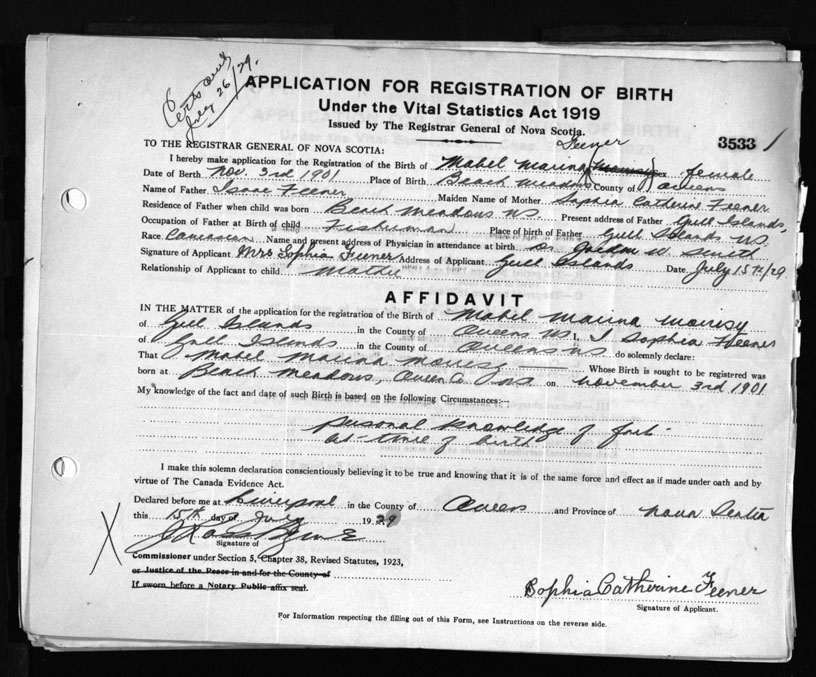 July 26/29.
APPLICATION FOR REGISTRATION OF BIRTH
Under the Vital Statistics Act 1919
Issued by The Registrar General of Nova Scotia.
3533
TO THE REGISTRAR GENERAL OF NOVA SCOTIA:
Feener
I hereby make application for the Registration of the Birth of Mabel Marina Sex female
Date of Birth Nov. 3rd 1901 Place of Birth Beach Meadows County of Queens
Name of Father Isaac Feener Maiden Name of Mother Sophia Catherine Feener
Residence of Father when child was born Beach Meadows N.S. Present address of Father Gull Islands,
Occupation of Father at Birth of child Fisherman Place of birth of Father Gull Islands N.S.
Race Name and present address of Physician in attendance at birth Dr W. Smith
Signature of Applicant Mrs Sophia Feener Address of Applicant Gull Islands Date July 15th/29
Relationship of Applicant to child
AFFIDAVIT
IN THE MATTER of the application for the registration of the Birth of Mabel Marina
of Gull Islands in the County of Queens NS I, Sophia Feener
of Gull Islands in the County of Queens NS do solemnly declare:
That Mabel Marina Whose Birth is sought to be registered was
born at Beach Meadows, NS on November 3rd 1901
My knowledge of the fact and date of such Birth is based on the following Circumstances:—
personal knowledge of fact
at time of birth
I make this solemn declaration conscientiously believing it to be true and knowing that it is of the same force and effect as if made under oath and by
virtue of The Canada Evidence Act.
Declared before me at Liverpool in the County of Queens and Province of Nova Scotia
this 15th day of July 1929
Signature of
Commissioner under Section 5, Chapter 38, Revised Statutes, 1923,
or Justice of the Peace in and for the County of
If sworn before a Notary Public affix seal.
Sophia Catherine Feener
Signature of Applicant.
For Information respecting the filling out of this Form, see Instructions on the reverse side.